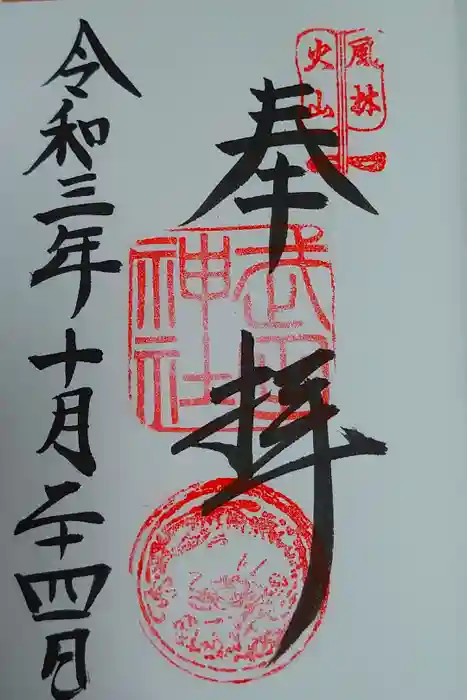 風林
火山
奉拝
武田
神社
令和三年十月二十四日